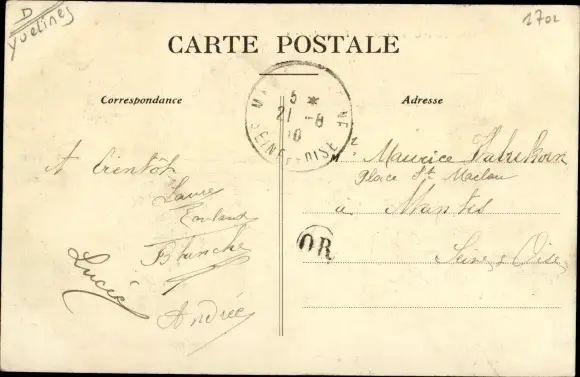 D
Yvelines
1702
CARTE POSTALE
Correspondance
Adresse
5 *
21 -8
10
SEINE-ET-OISE
A bientôt
Laure
Blanche
Lucie
Andrée
Mr Maurice
Place St Maclou
à Mantes
OR
Seine & Oise